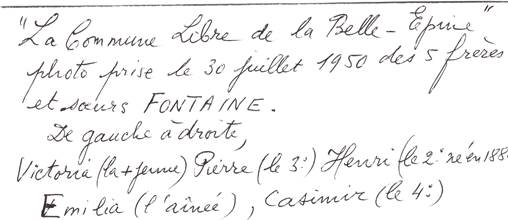 "La Commune Libre de la Belle-Epine"
photo prise le 30 juillet 1950 des 5 frères
et sœurs FONTAINE.
De gauche à droite,
Victoria (la + jeune) Pierre (le 3:) Henri (le 2: né en 188
Emilia (l'aînée), Casimir (le 4:)